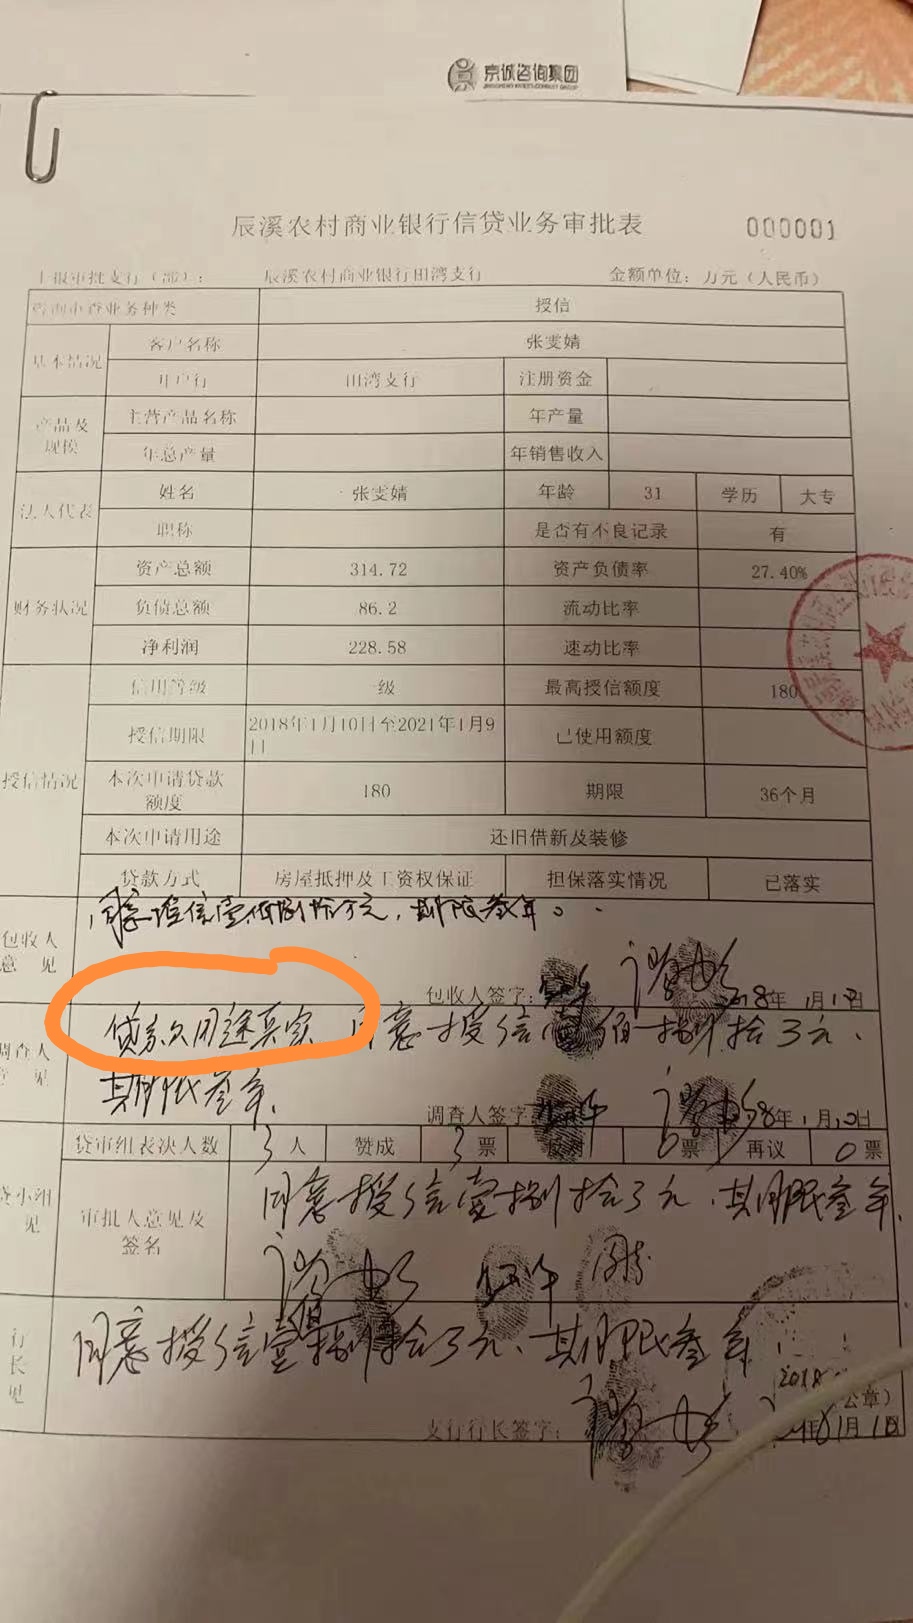 京诚咨询集团
辰溪农村商业银行信贷业务审批表 000001
上报审批支行（部）： 辰溪农村商业银行田湾支行 金额单位：万元（人民币）
业务种类 授信
基本情况 客户名称 张雯婧
开户行 田湾支行 注册资金
产品及规模 主营产品名称 年产量
年总产量 年销售收入
法人代表 姓名 张雯婧 年龄 31 学历 大专
职称 是否有不良记录 有
财务状况 资产总额 314.72 资产负债率 27.40%
负债总额 86.2 流动比率
净利润 228.58 速动比率
授信情况 信用等级 一级 最高授信额度 180
授信期限 2018年1月10日至2021年1月9日 已使用额度
本次申请贷款额度 180 期限 36个月
本次申请用途 还旧借新及装修
贷款方式 房屋抵押及工资权保证 担保落实情况 已落实
包收人意见 同意授信壹佰捌拾万元，期限叁年。
包收人签字： 年1月10日
调查人意见 贷款用途真实 同意授信壹佰捌拾万元、
期限叁年.
调查人签字 18年1月10日
贷审组表决人数 3人 赞成 3票 反对 0票 再议 0票
贷小组见 审批人意见及签名 同意授信壹捌拾万元、期限叁年.
行长见 同意授信壹捌拾万元、期限叁年
2018
（公章）
支行行长签字： 年01月10日